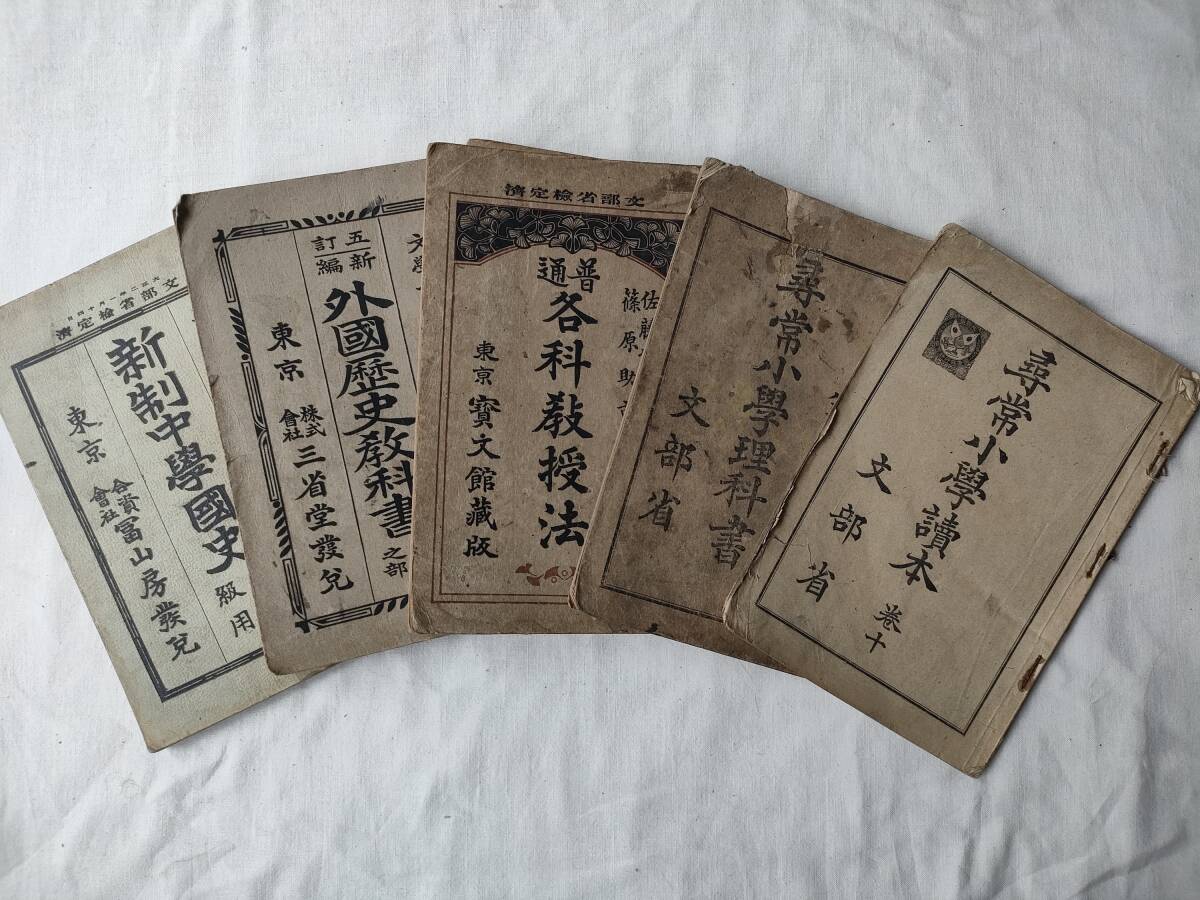 尋常小學讀本 卷十
文部省
尋常小學理科書
文部省
文部省檢定濟
普通
各科教授法
篠原助
東京 寶文館藏版
五訂
新編
外國歷史教科書 之部
東京 株式會社 三省堂發兌
文部省檢定濟
新制中學國史 級用
東京 合資會社 冨山房發兌